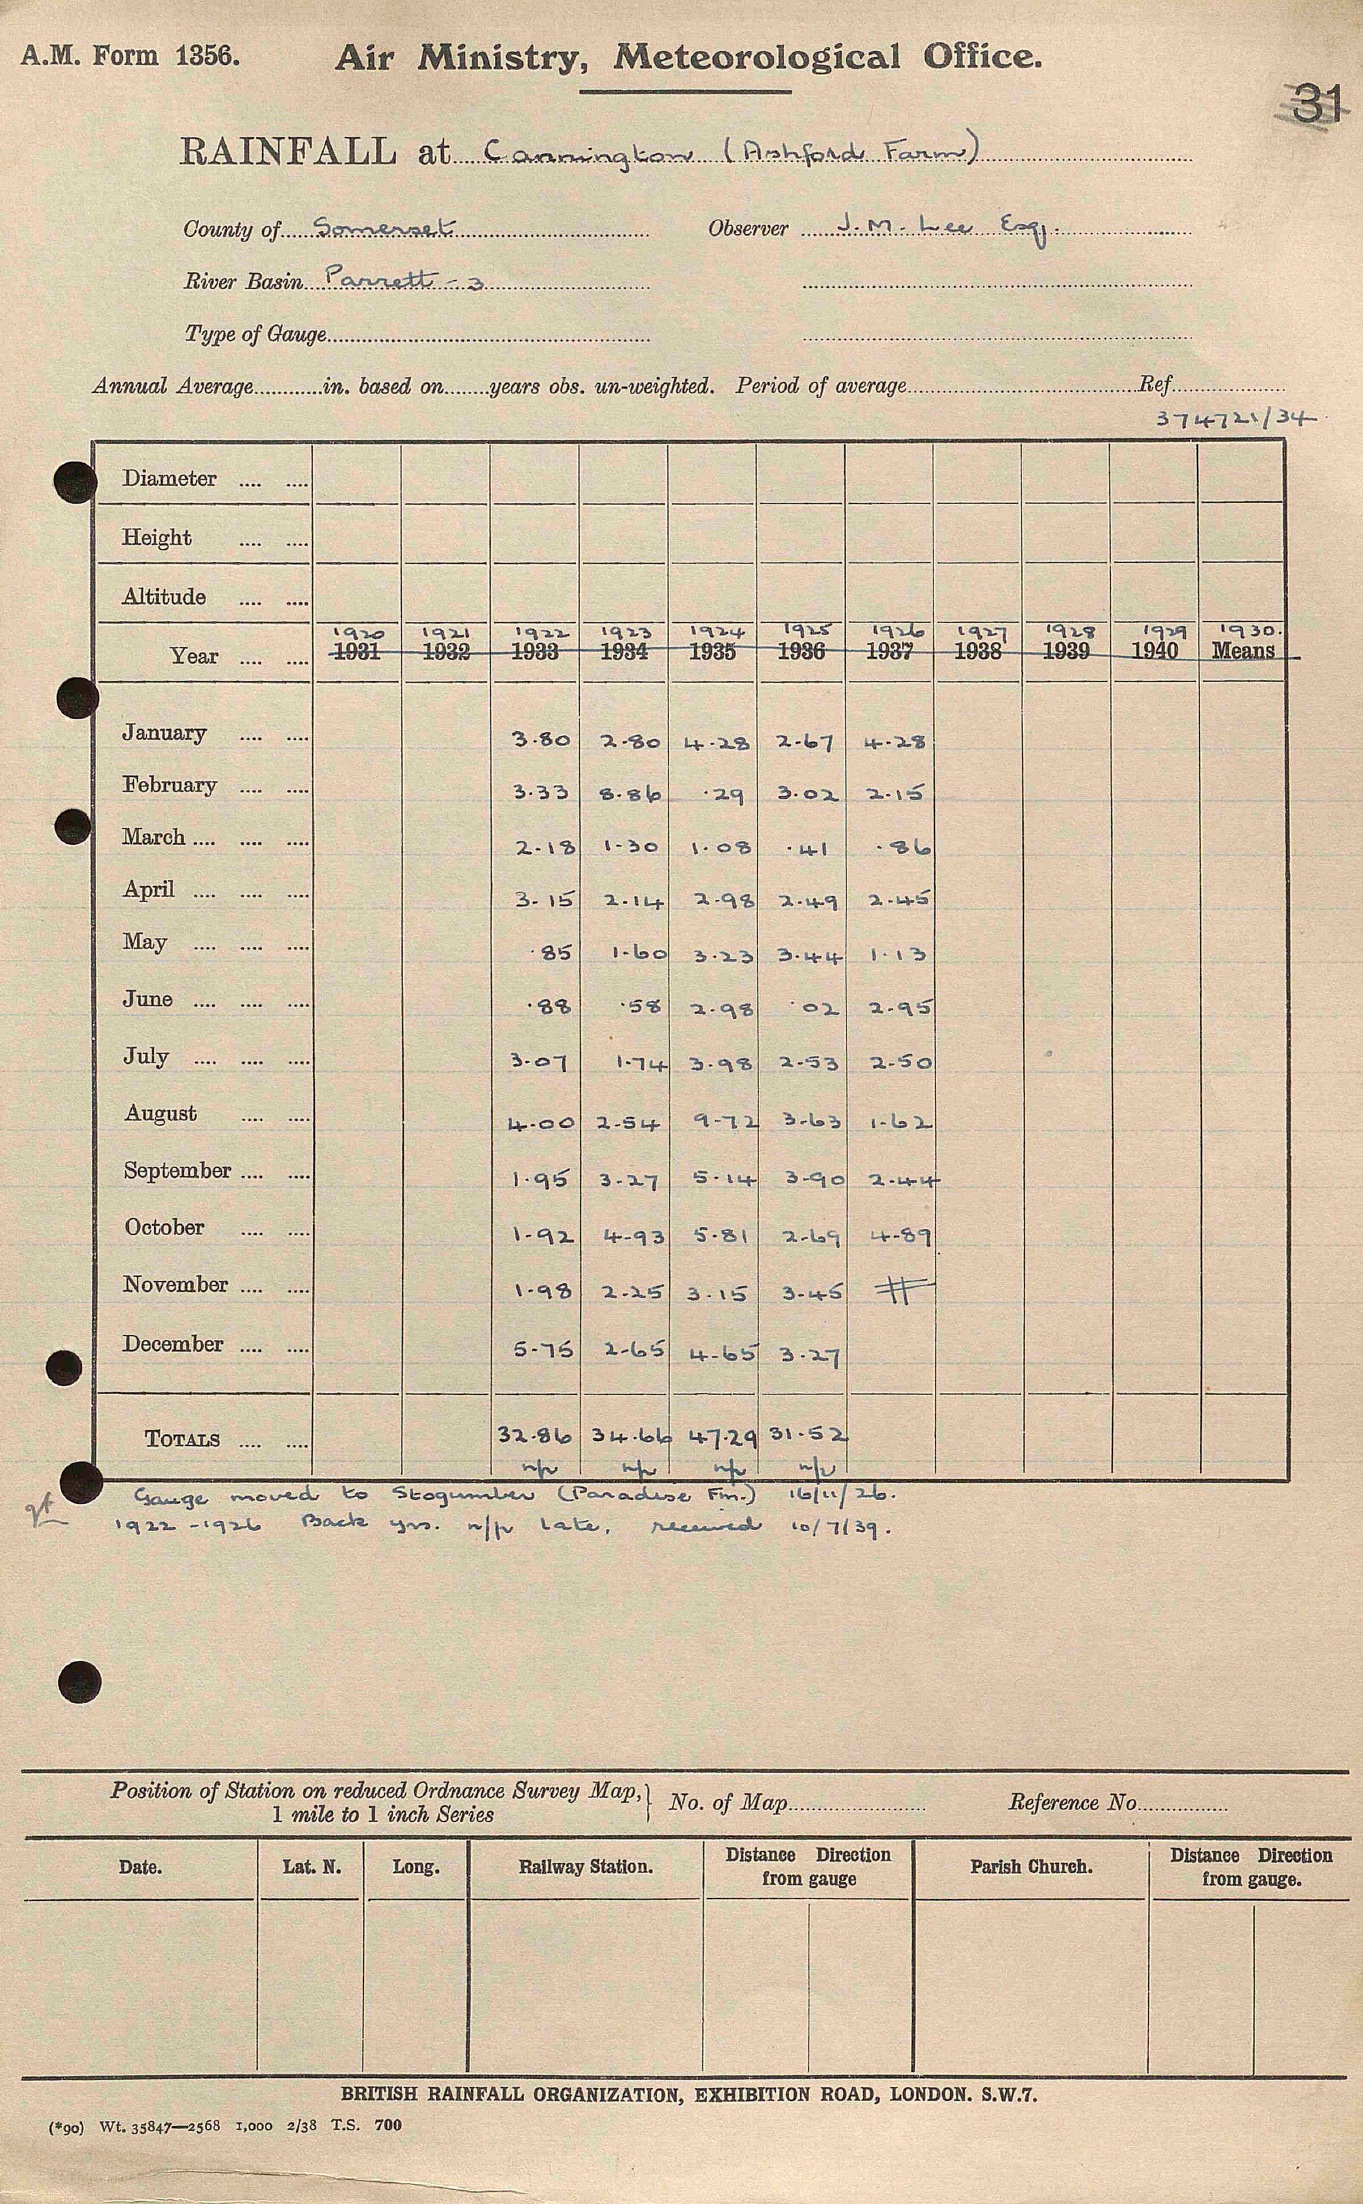 A.M. Form 1356. Air Ministry, Meteorological Office.
31
RAINFALL at Cannington (Ashford Farm)
County of Somerset Observer J.M. Lee Esq.
River Basin Parrett - 3
Type of Gauge
Annual Average in. based on years obs. un-weighted. Period of average Ref.
374721/34
Diameter
Height
Altitude
1920 1921 1922 1923 1924 1925 1926 1927 1928 1929 1930.
Year 1931 1932 1933 1934 1935 1936 1937 1938 1939 1940 Means
January 3.80 2.80 4.28 2.67 4.28
February 3.33 8.86 .29 3.02 2.15
March 2.18 1.30 1.08 .41 .86
April 3.15 2.14 2.98 2.49 2.45
May .85 1.60 3.23 3.44 1.13
June .88 .58 2.98 .02 2.95
July 3.07 1.74 3.98 2.53 2.50
August 4.00 2.54 9.72 3.63 1.62
September 1.95 3.27 5.14 3.90 2.44
October 1.92 4.93 5.81 2.69 4.89
November 1.98 2.25 3.15 3.45 #
December 5.75 2.65 4.65 3.27
TOTALS 32.86 34.66 47.29 31.52
n/p n/p n/p n/p
Gauge moved to Stogumber (Paradise Fm.) 16/11/26.
1922 - 1926 Back yrs. n/p late, received 10/7/39.
Position of Station on reduced Ordnance Survey Map, 1 mile to 1 inch Series } No. of Map Reference No.
Date. Lat. N. Long. Railway Station. Distance Direction from gauge Parish Church. Distance Direction from gauge.
BRITISH RAINFALL ORGANIZATION, EXHIBITION ROAD, LONDON. S.W.7.
(*90) Wt. 35847—2568 1,000 2/38 T.S. 700